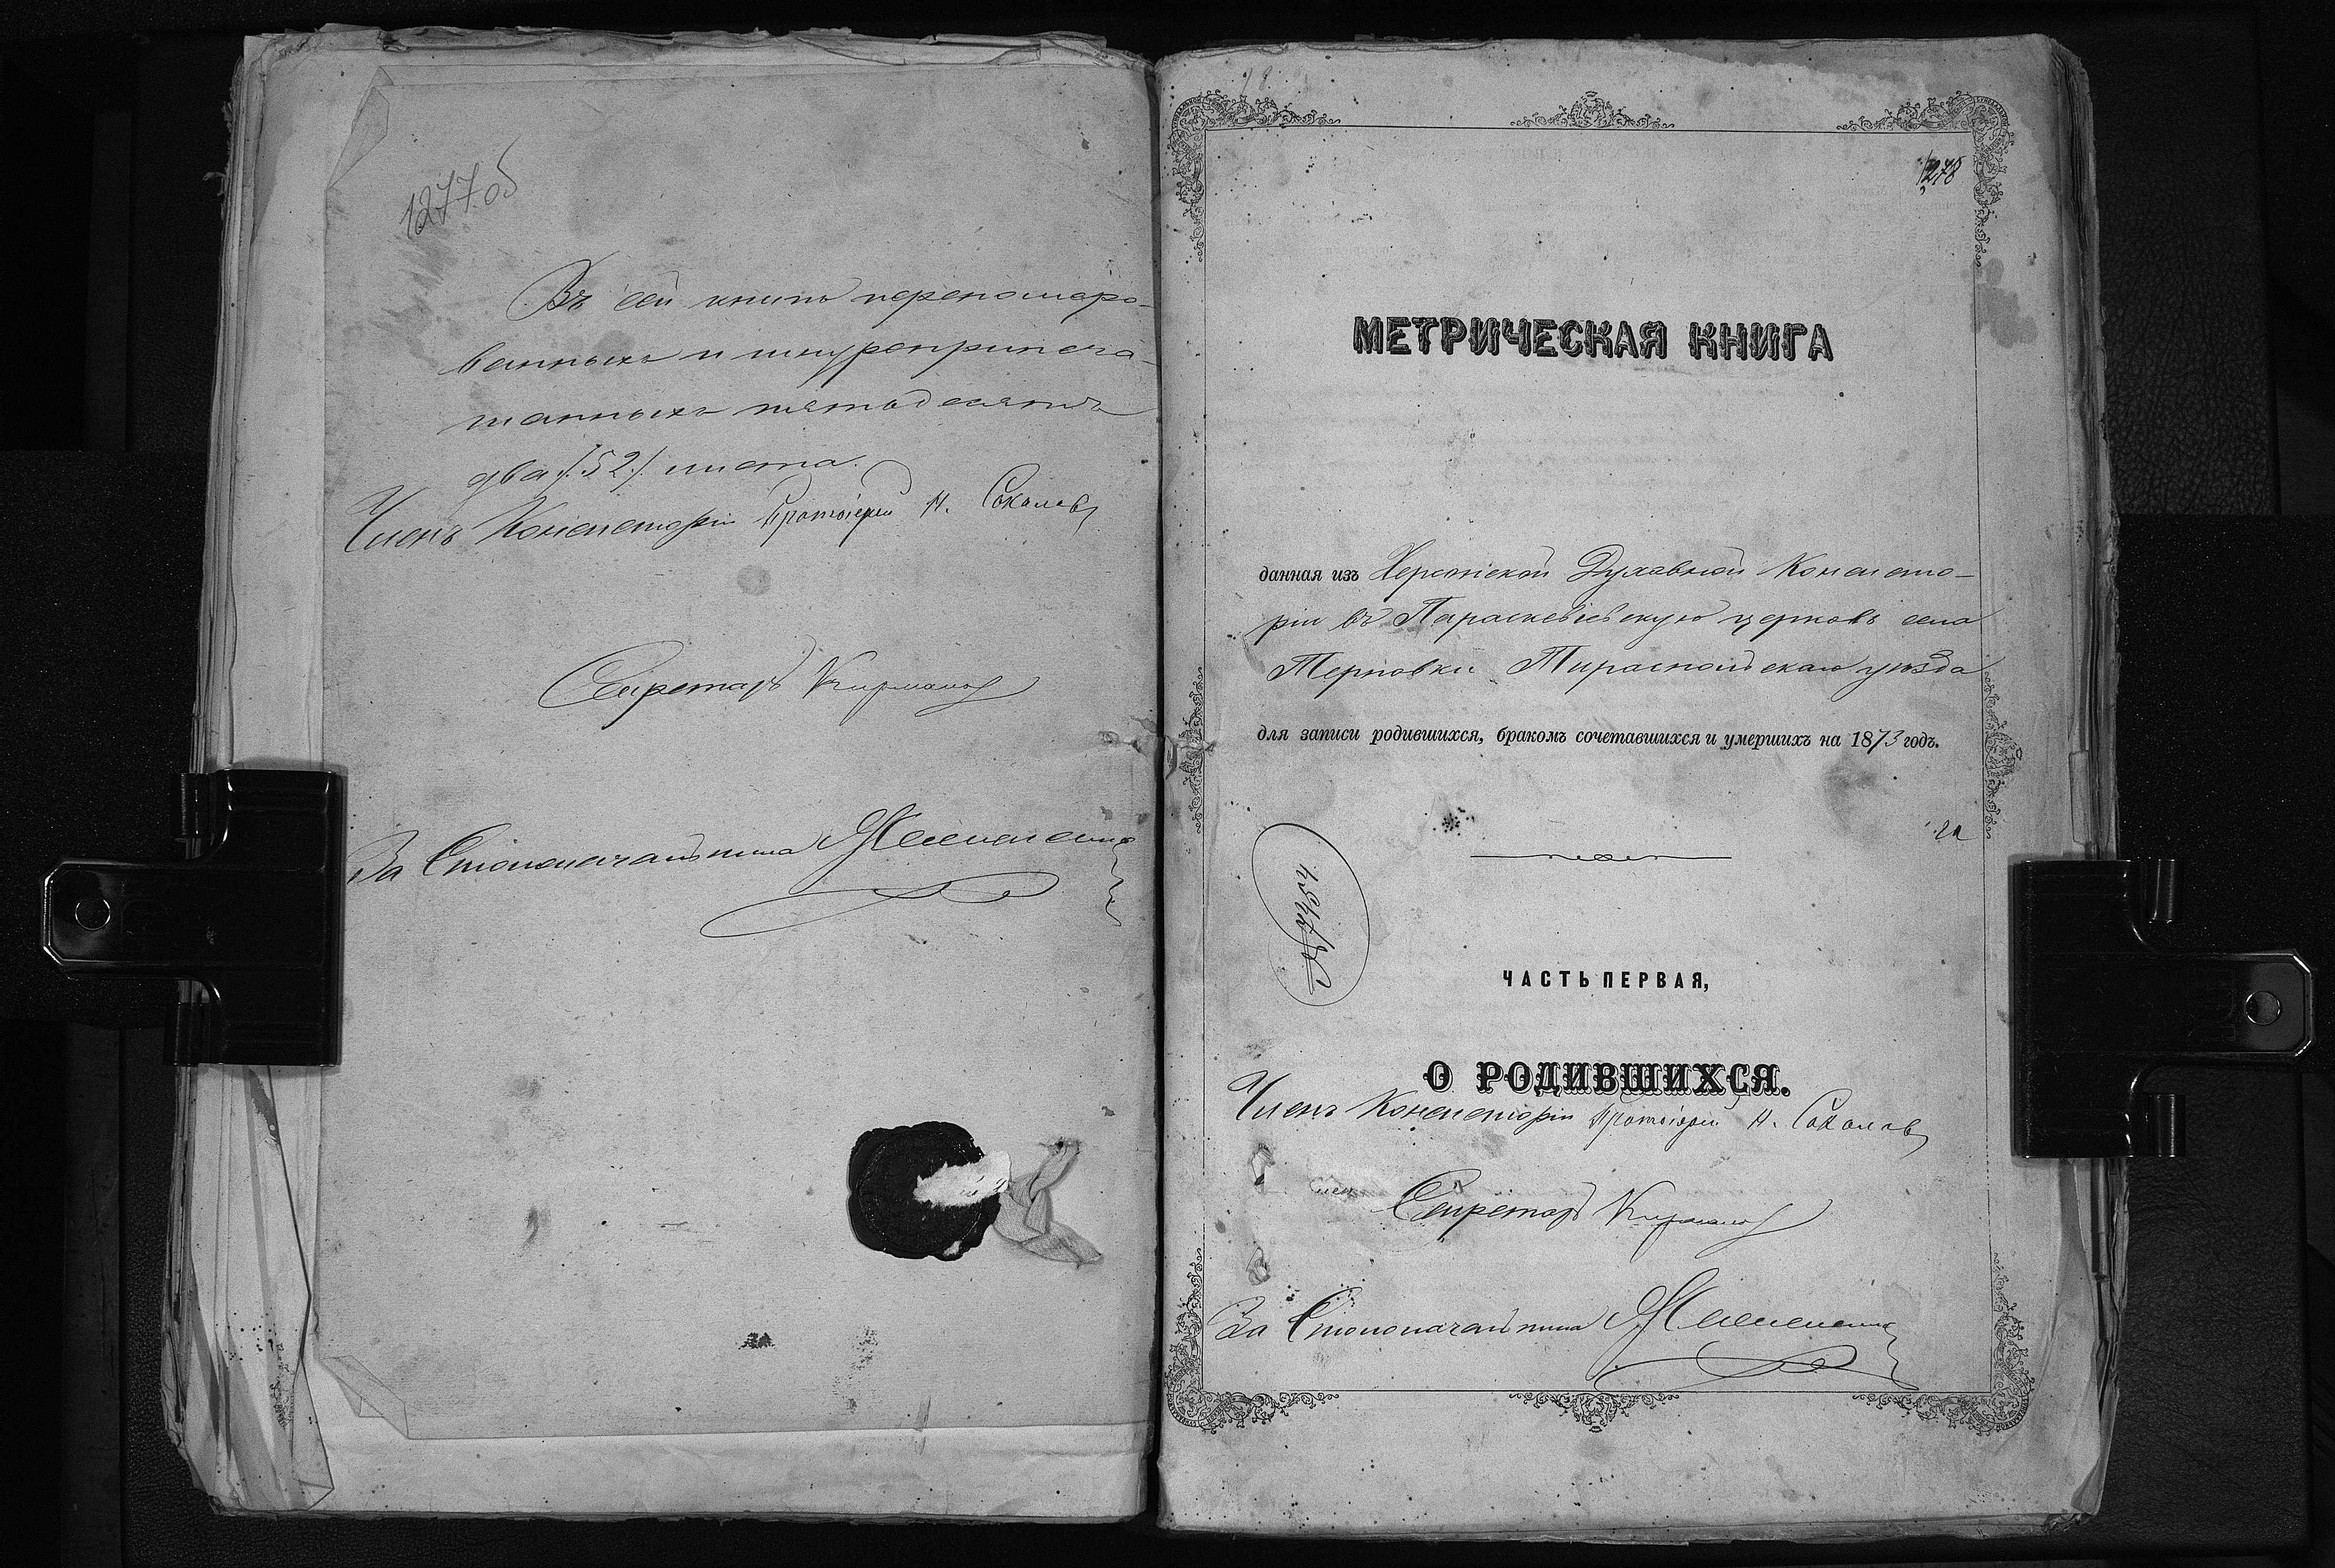 1277 об
Въ сей книгѣ перенумеро-
ванныхъ и шнуроприпеча-
танныхъ пятьдесятъ
два /:52:/ листа.
Членъ Консисторіи Протоіерей Н. Соколовъ
Секретарь
За Столоначальника
1278
МЕТРИЧЕСКАЯ КНИГА
данная изъ Херсонской Духовной Консисто-
ріи въ Параскевіевскую церковь села
Терновки Тираспольскаго уѣзда
для записи родившихся, бракомъ сочетавшихся и умершихъ на 1873 годъ.
№ 7454
ЧАСТЬ ПЕРВАЯ,
О РОДИВШИХСЯ.
Членъ Консисторіи Протоіерей Н. Соколовъ
Секретарь
За Столоначальника